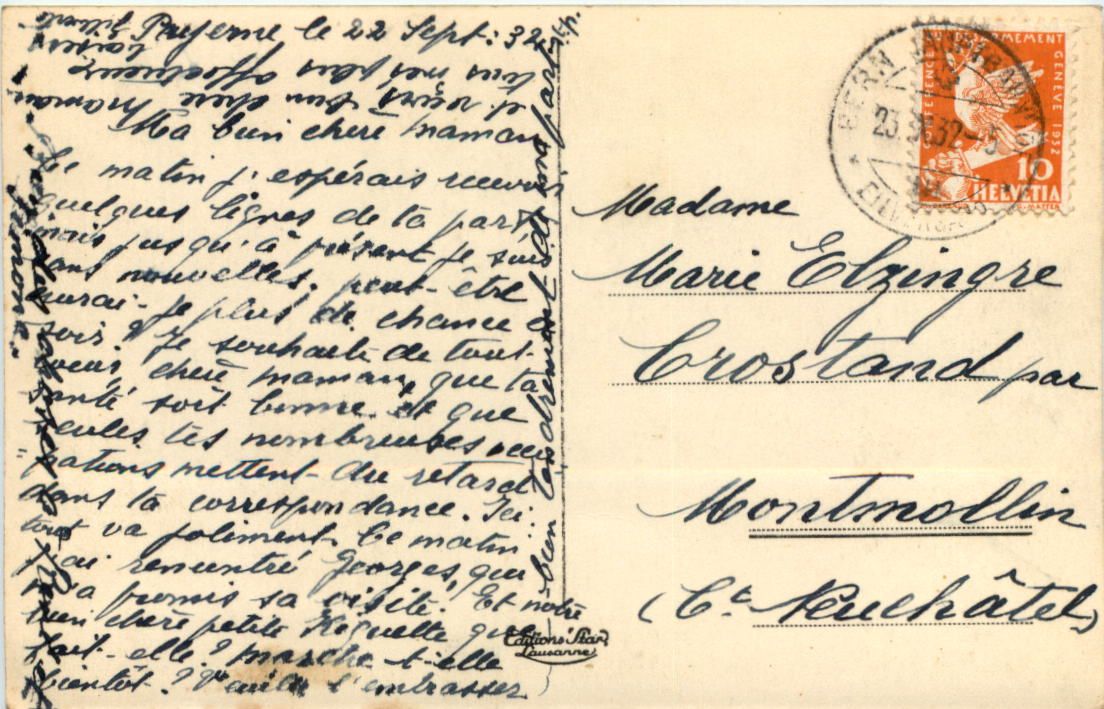 Payerne le 22 Sept: 32
Ma bien chère maman
Ce matin j'espérais recevoir
quelques lignes de ta part,
mais jusqu'à présent je suis
sans nouvelles, peut-être
aurai-je plus de chance ce
soir? Je souhaite de tout
chère maman, que ta
santé soit bonne et que
seules tes nombreuses occu
pations mettent du retard
dans ta correspondance. Ici
tout va joliment. Ce matin
j'ai rencontré Georges, qui
m'a promis sa visite. Et notre
bien chère petite Huguette que
fait-elle? marche-t-elle
bientôt? Veuille l'embrasser
bien tendrement de ma part
et reçois bien chère maman
tous mes plus affectueux
baisers
Madame
Marie Elzingre
Crostand par
Montmollin
(Ct Neuchâtel)
Editions "Star"
Lausanne
BERN
23.IX.32
CONFERENCE DU DESARMEMENT GENEVE 1932
10
HELVETIA